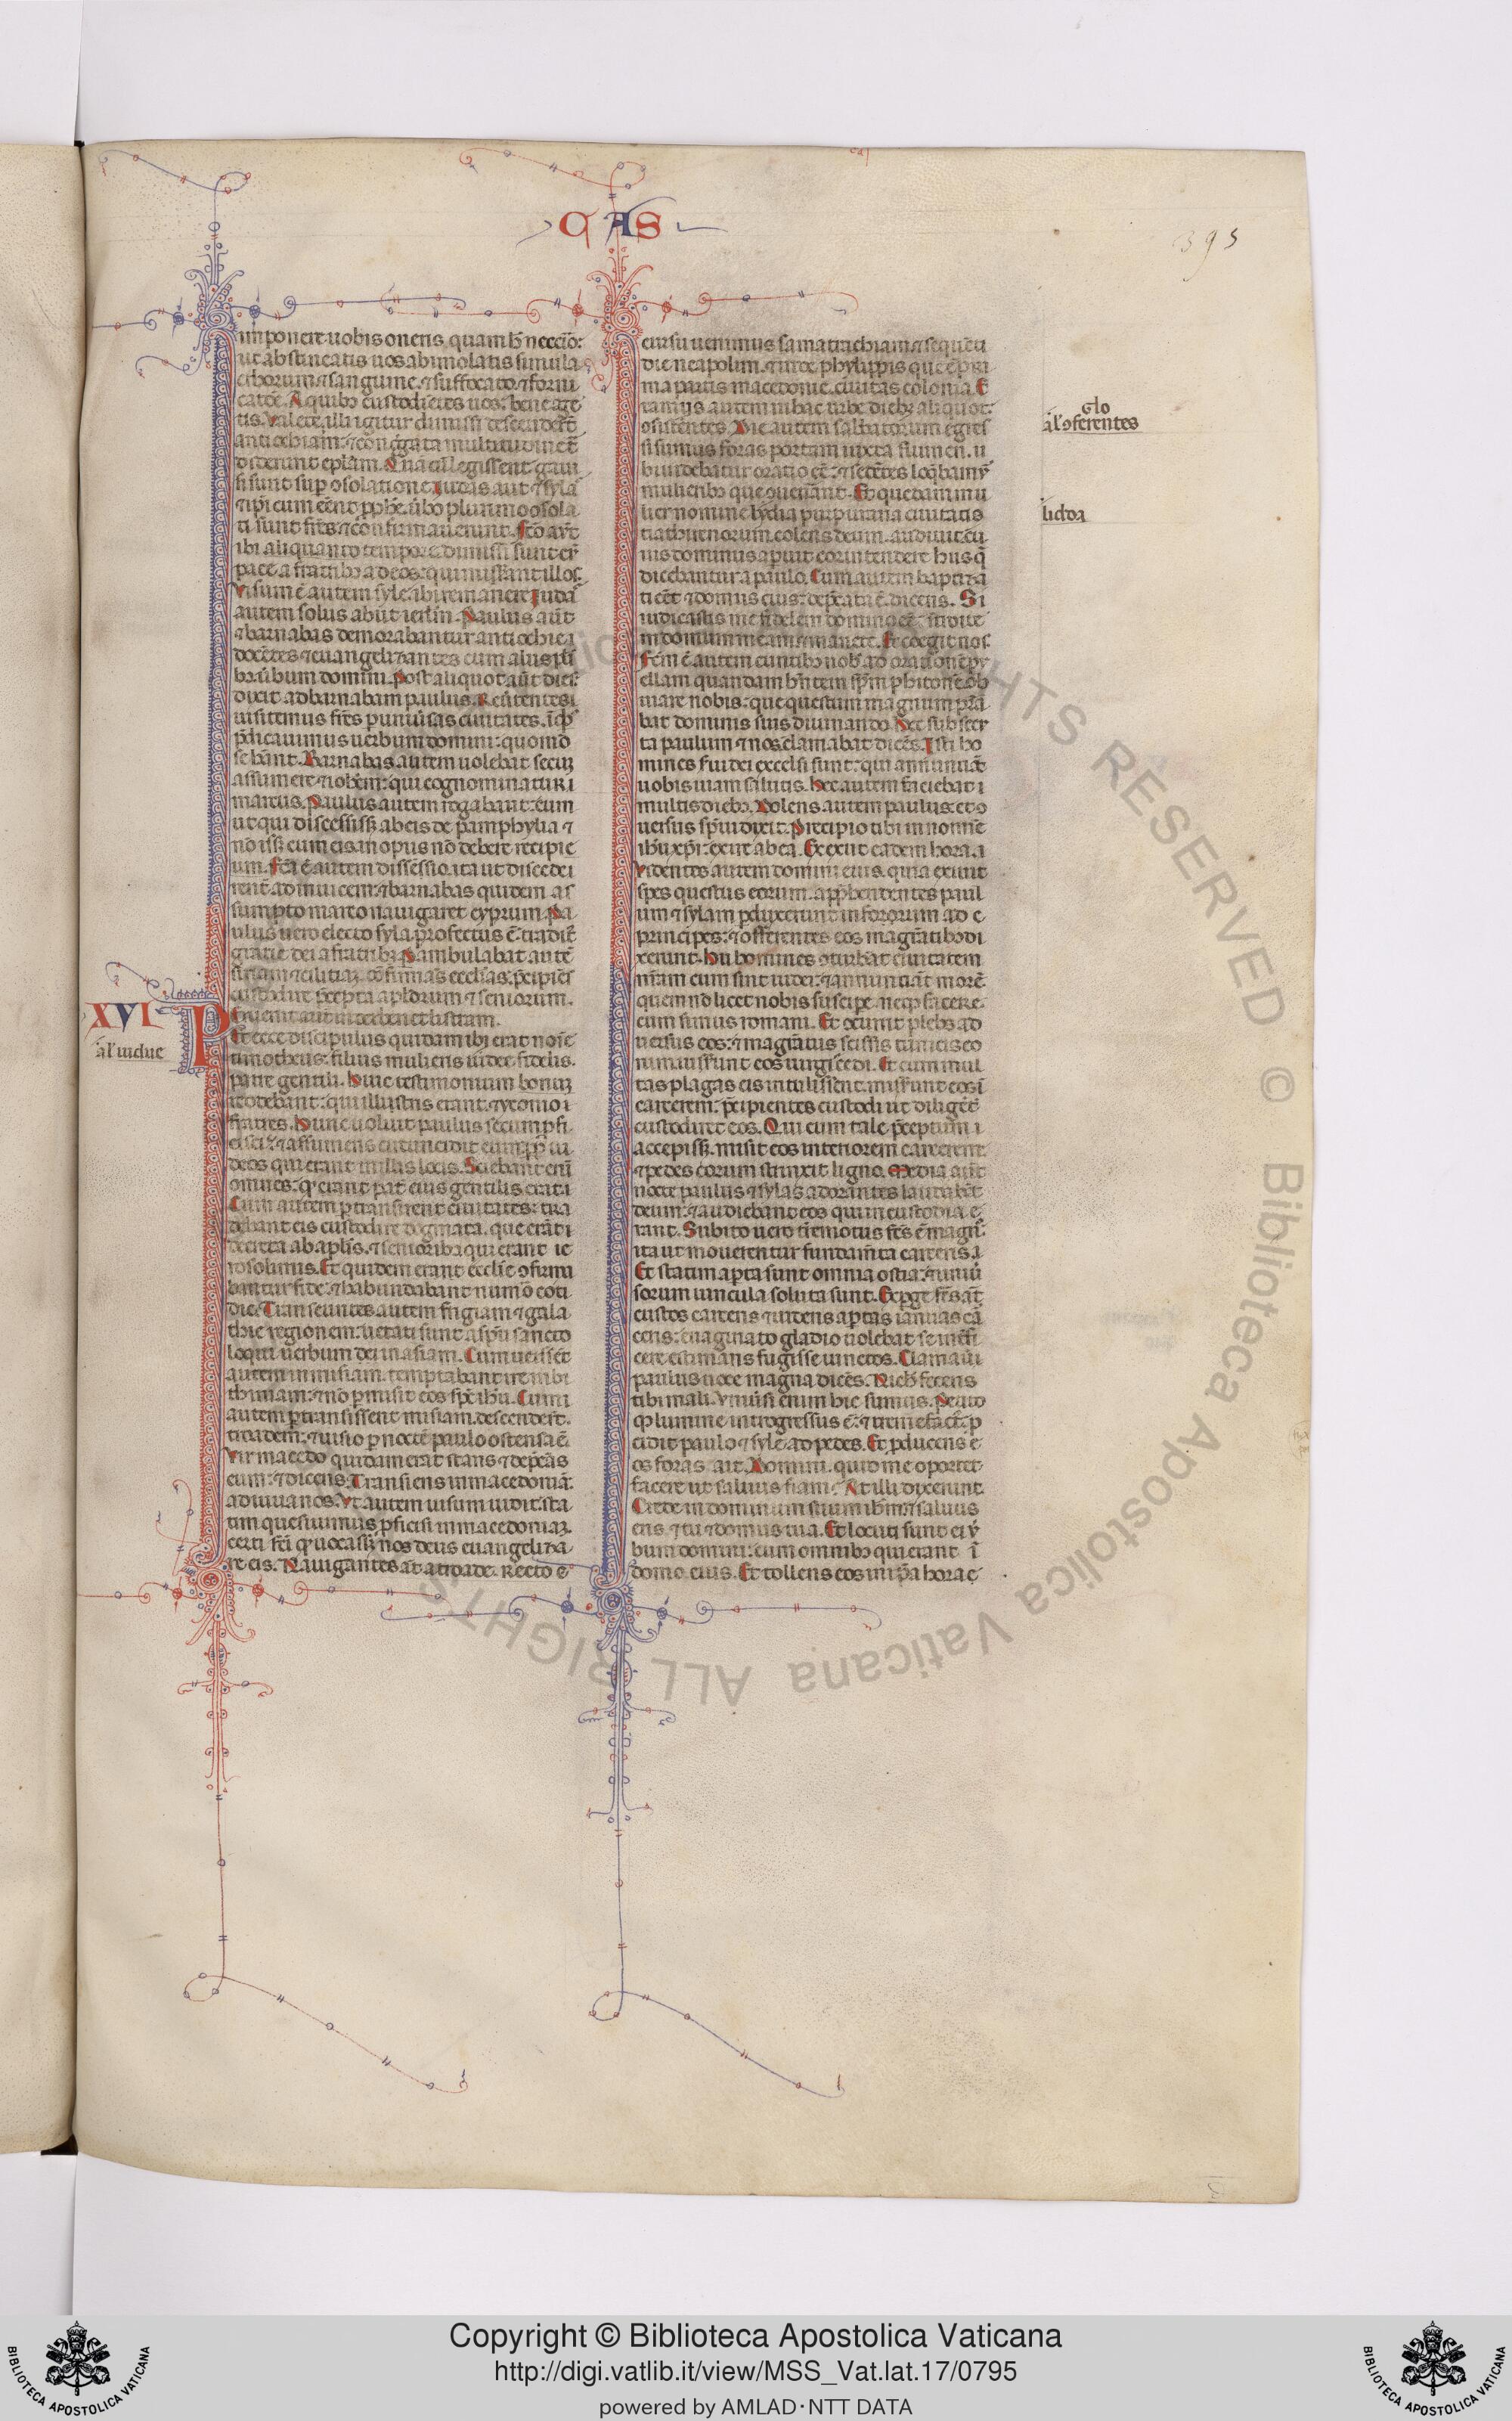 CAS
395
imponere uobis oneris quam h̄ neccīo:
ut abstineatis uos ab imolatis simula
chorum ⁊ sanguine ⁊ suffocato ⁊ forni
catōe. A quibȝ custodientes uos: bene age
tis. Valete. illi igitur dimissi descenderūt
antiochiam: ⁊ congͤgata multitudine t̄
diderunt epl̄am. Quā cū legissent gaui
si sunt suꝑ ↄsolatione. Iudas aut̄ ⁊ syla
⁊ ip̄i cum eēnt ꝓph̄e. ūbo plurimo ↄsola
ti sunt fr̄es ⁊ confirmauerunt. Fc̄o aūt
ibi aliquanto tempore dimissi sunt cū
pace a fratribȝ ad eos: qui miserant illos.
Visum ē autem syle ibi remanere. Iudas
autem solus abiit ierl̄m. Paulus aūt
⁊ barnabas demorabantur antiochie:
docētes ⁊ euangelizantes cum aliis pl̄i
bȝ ūbum domini. Post aliquot aūt dies:
dixit ad barnabam paulus. Reūtentes
uisitemus fr̄es ꝑ uniūsas ciuitates. ī qͥbȝ
p̄dicauimus uerbum domini: quomō
se hānt. Barnabas autem uolebat secuȝ
assumere ⁊ iohēm: qui cognominatur
marcus. Paulus autem rogabat: eum
ut qui discessissȝ ab eis de pamphylia ⁊
nō issȝ cum eis in opus nō debere recipie
um. Fc̄a ē autem dissēssio. ita ut discede
rent ad inuicem: ⁊ barnabas quidem as
sumpto marco nauigaret cyprum. Pa
ulus uero electo syla ꝓfectus ē: tradit̄
gratie dei a fratribȝ. Perambulabat autē
siriam ⁊ ciliciaȝ cōfirmās ecclīas: p̄cipiēs
custodire p̄cepta apl̄orum ⁊ seniorum.
XVI
Peruenit aut̄ in derben et listram.
Et ecce discipulus quidam ibi erat noīe
al' uidue
timotheus: filius mulieris iudee fidelis.
patre gentili. Huic testimonium bonuȝ
reddebant: qui illustris erant. ⁊ yconio
fratres. Hunc uoluit paulus secum ꝓfi
cisci: ⁊ assumens circuncidit eum: ꝓpt̄ iu
deos qui erant in illis locis. Sciebant enī
omnes: qͥ erant pat̄ eius gentilis erat.
Cum autem ꝑtransirent ciuitates: tra
debant eis custodire dogmata. que erāt
decreta ab apl̄is. ⁊ senioribȝ qui erant ie
rosolimis. Et quidem erant ecclīe ↄfirma
bantur fide: ⁊ habundabant numō coti
die. Transeuntes autem frigiam ⁊ gala
thie regionem: uetati sunt a sp̄u sancto
loqui uerbum dei in asiam. Cum uenissēt
autem in misiam. temptabant ire in bi
thiniam: ⁊ nō ꝑmisit eos sp̄c ih̄u. Cum
autem ꝑtransissent misiam. descendert̄.
troadem: ⁊ uisio ꝑ noctē paulo ostensa ē
Vir macedo quidam erat stans ⁊ dep̄cās
eum: ⁊ dicens. Transiens in macedoniā:
adiuua nos. Vt autem uisum uidit: sta
tim quesiuimus ꝓficisci in macedoniaȝ.
certi fc̄i qͥ uocassȝ nos deus euangeliza
re eis. Nauigantes at̄ a troade. recto
cursu uenimus samatrachiam: ⁊ sequēti
die neapolim. ⁊ inde phylippis que ē pri
ma partis macedonie. ciuitas colonia. E
ramus autem in hac urbe diebȝ aliquot:
ↄsistentes. Die autem sabbatorum egres
Glo
al' ↄferentes
si sumus foras portam iuxta flumen. u
bi uidebatur oratio eē: ⁊ sedētes loq̄bamur
mulieribȝ que ↄuenerant. Et quedam mu
lier nomine lydia purpuraria ciuitatis
lidda
tiathirenorum. colens deum. audiuit: cu
ius dominus aperuit cor intendere hiis q̄
dicebantur a paulo. Cum autem baptiza
ta eēt ⁊ domus eius: dep̄cata ē dicens. Si
iudicastis me fidelem domino eē: introite
in domum meam: ⁊ manete. Et coegit nos.
Fc̄m ē autem euntibȝ nob̄ ad orationē: pu
ellam quandam hn̄tem sp̄m phitonē. ob
uiare nobis: que questum magnum prā
bat dominis suis diuinando. Hec subsecu
ta paulum ⁊ nos: clamabat dicēs. Isti ho
mines serui dei excelsi sunt: qui annuntiāt
uobis uiam salutis. Hec autem faciebat
multis diebȝ. Dolens autem paulus: et ↄ
uersus sp̄ui dixit. Precipio tibi in nomīe
ih̄u xp̄i: exire ab ea. Et exiit eadem hora.
Videntes autem domini eius quia exiuit
spes questus eorum. app̄hendentes paul
um ⁊ sylam ꝑduxerunt in forum ad
principes: ⁊ offerentes eos magr̄atibȝ di
xerunt. Hii homines ↄturbāt ciuitatem
nr̄am cum sint iudei: ⁊ annuntiāt morē
quem nō licet nobis suscipe. neqȝ facere.
cum simus romani. Et ↄcurrit plebs ad
uersus eos: ⁊ magr̄atus scissis tunicis eo
rum. iusserunt eos uirgis cedi. Et cum mul
tas plagas eis intulissent. miserunt eos ī
carcerem: p̄cipientes custodi ut diligēt̄
custodiret eos. Qui cum tale p̄ceptum
accepissȝ. misit eos interiorem carcerem:
⁊ pedes eorum strinxit ligno. Media aūt
nocte paulus ⁊ sylas adorantes laudabāt
deum: ⁊ audiebant eos qui in custodia e
rant. Subito uero t̄remotus fc̄s ē magn':
ita ut mouerentur fundam̄ta carceris.
Et statim aperta sunt omnia ostia: ⁊ uniū
sorum uincula soluta sunt. Expge fc̄s at̄
custos carceris ⁊ uidens apertas ianuas cā
ceris: euaginato gladio uolebat se int̄fi
cere: estimans fugisse uinctos. Clamauit
paulus uoce magna dicēs. Nichil feceris
tibi mali. Vniūsi enim hic sumus. Petito
qͥ lumine introgressus ē: ⁊ tremefact̄. p
cidit paulo ⁊ syle ad pedes. Et ꝓducens e
os foras ait. Domini. quid me oportet
facere ut saluus fiam? At illi dixerunt.
Crede in dominum ih̄m: ⁊ saluus
eris ⁊ tu ⁊ domus tua. Et locuti sunt ei ū
bum domini: cum omnibȝ qui erant ī
domo eius. Et tollens eos in ip̄a hora
Copyright © Biblioteca Apostolica Vaticana
http://digi.vatlib.it/view/MSS_Vat.lat.17/0795
powered by AMLAD·NTT DATA